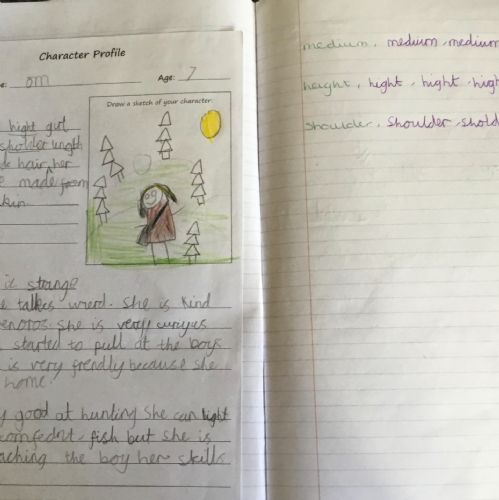 Character Profile
e: om Age: 7
Draw a sketch of your character.
hight girl
sholder length
hair, her
e made from
skin.
it strange
e talkes wierd. She is kind
She is very
started to pull at the boys
is very frendly because she
home.
y good at hunting She can light
fish but she is
aching the boy her skills
medium, medium, medium
height, hight, hight, hight
Shoulder, shoulder, shold